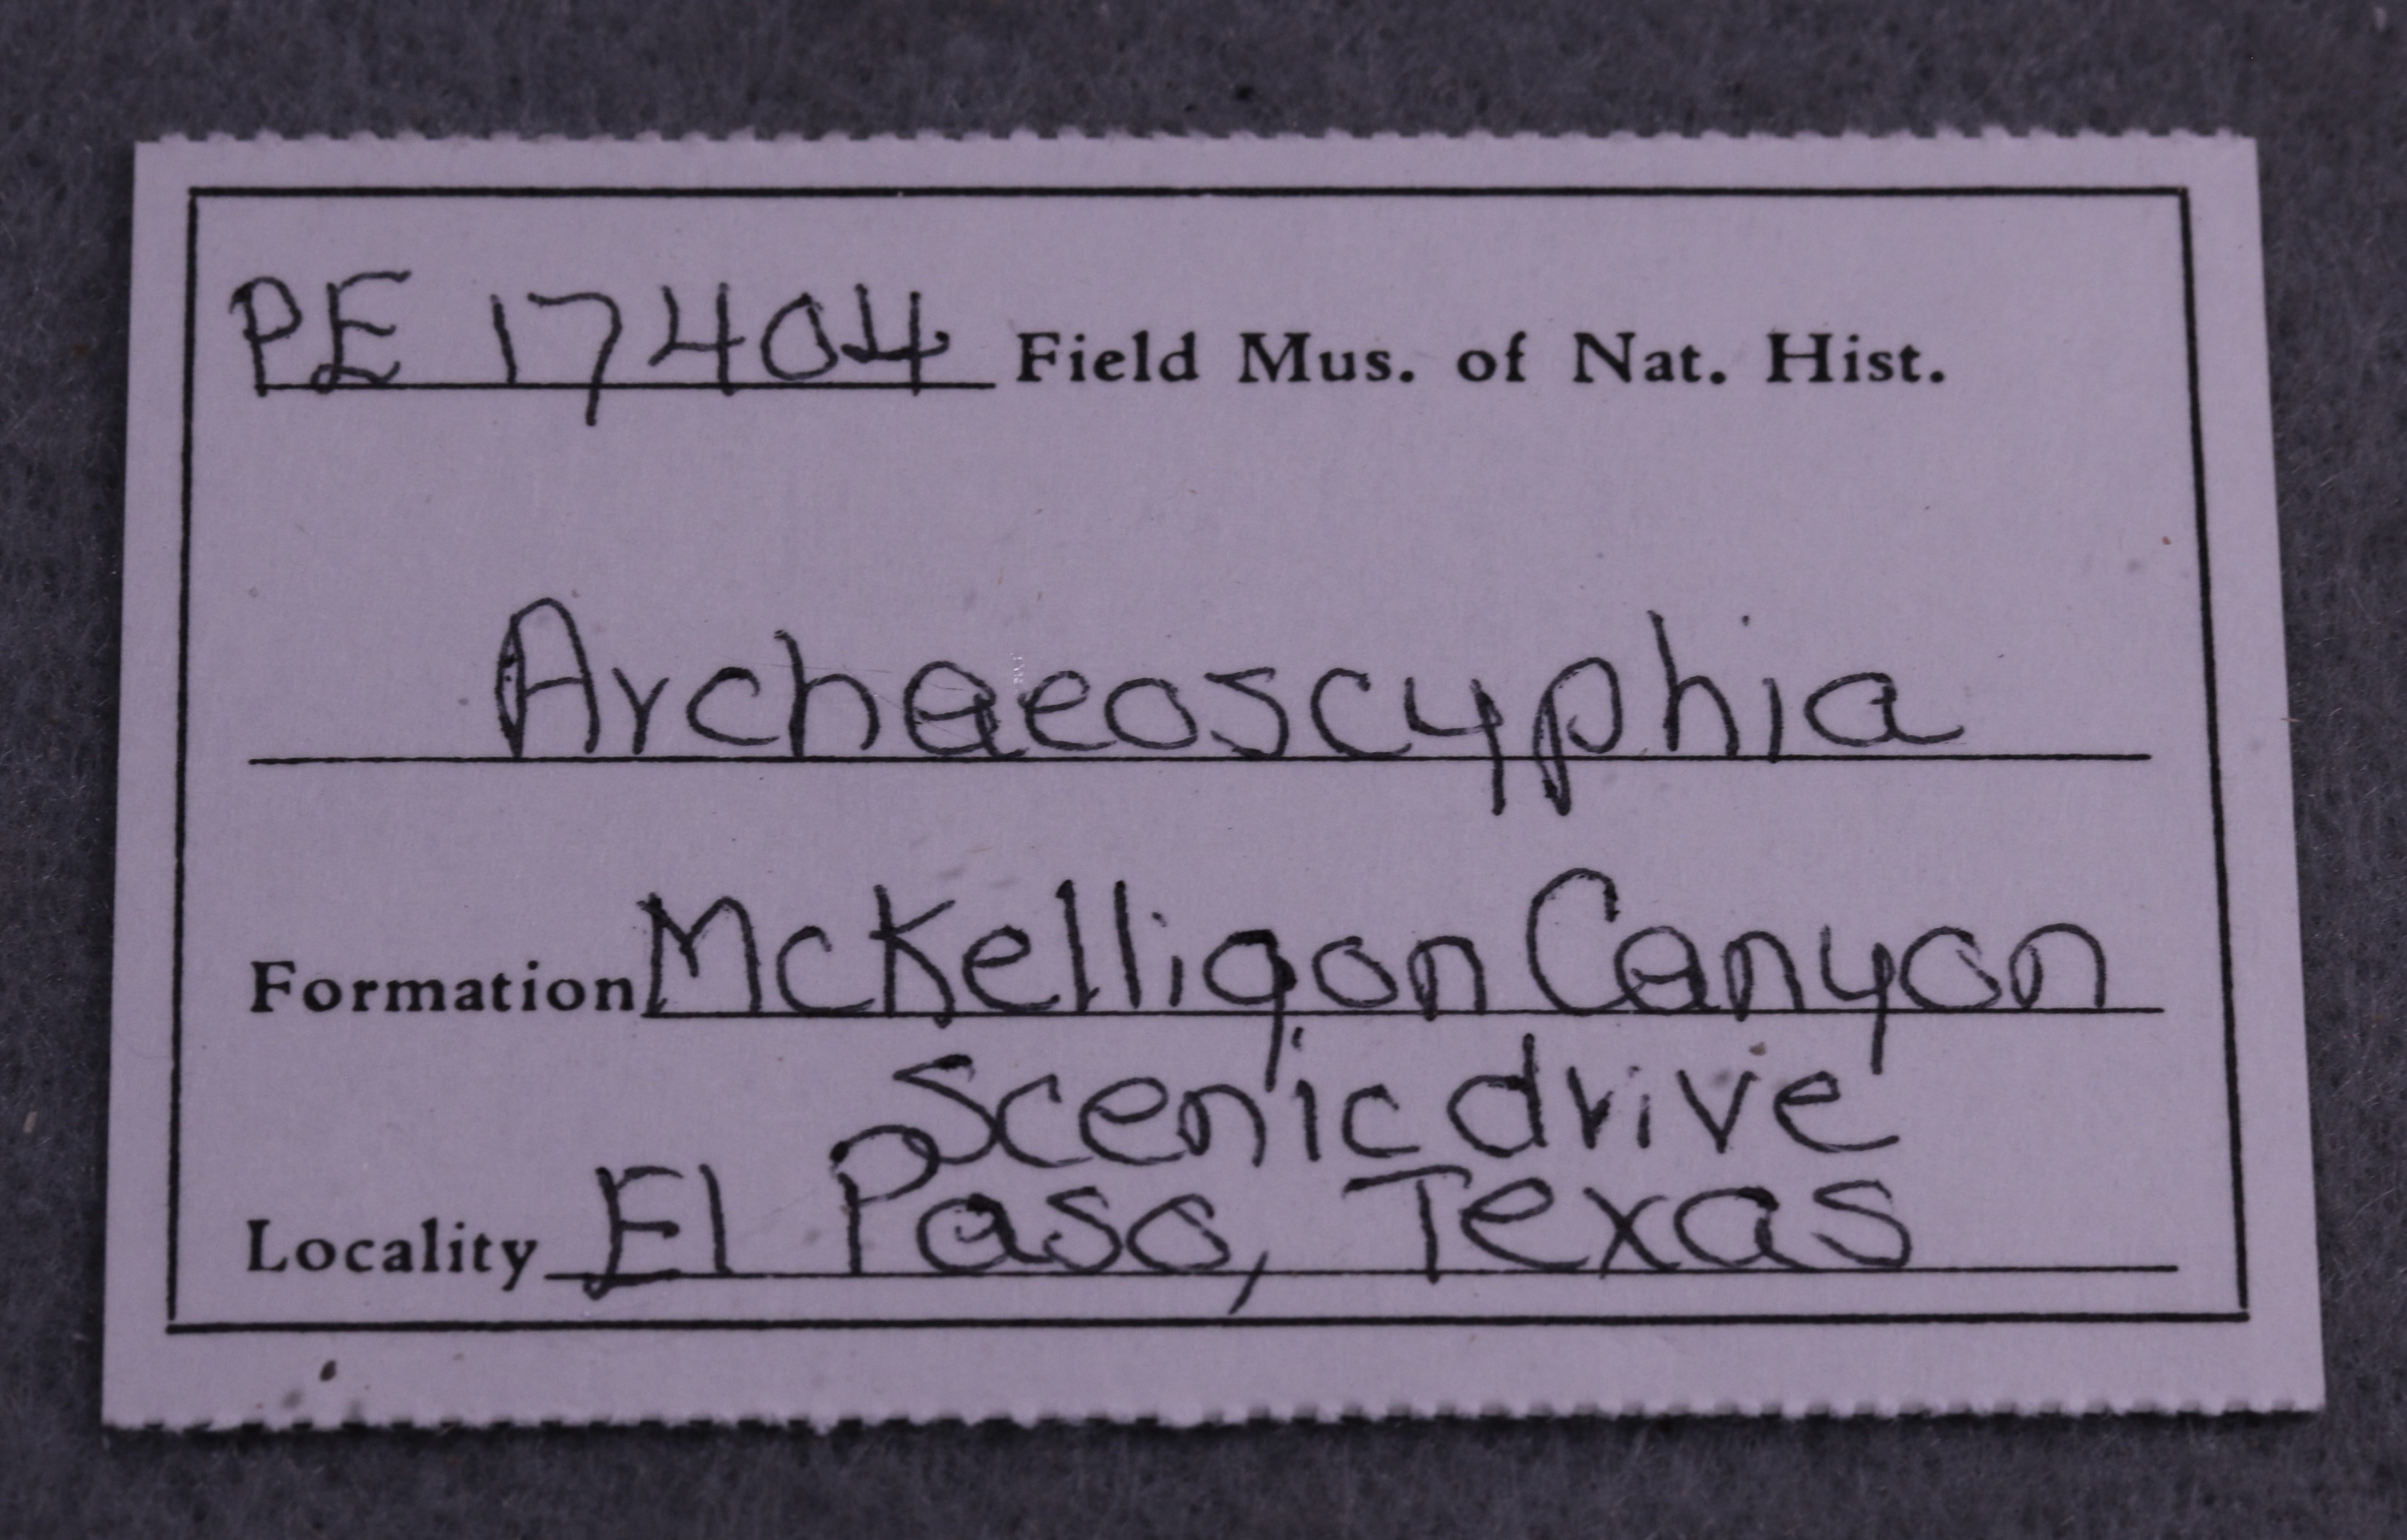 PE 17404 Field Mus. of Nat. Hist.
Archaeoscyphia
Formation McKelligon Canyon
Scenic drive
Locality El Paso, Texas